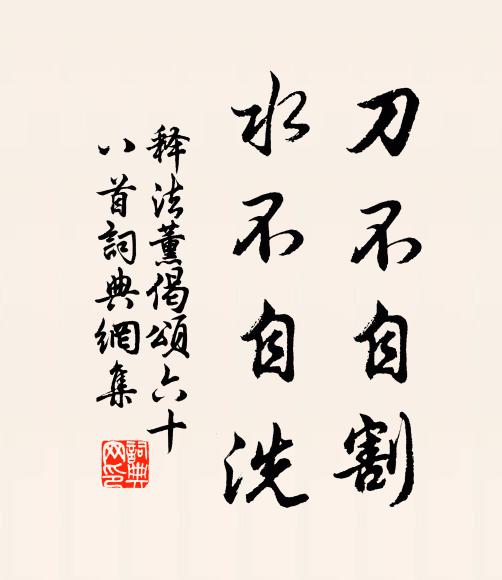 刀不自割
水不自洗
释法薰偈頌六十
八首詞典網集
詞典
网印